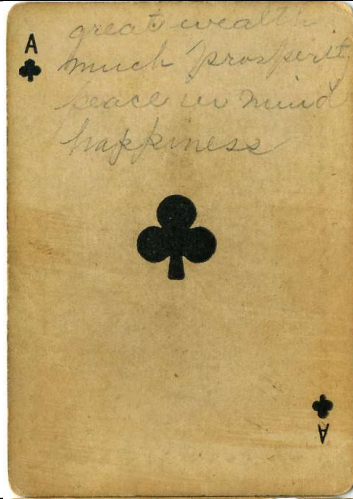 A
great wealth
much prosperit
peace in mind
happiness
A